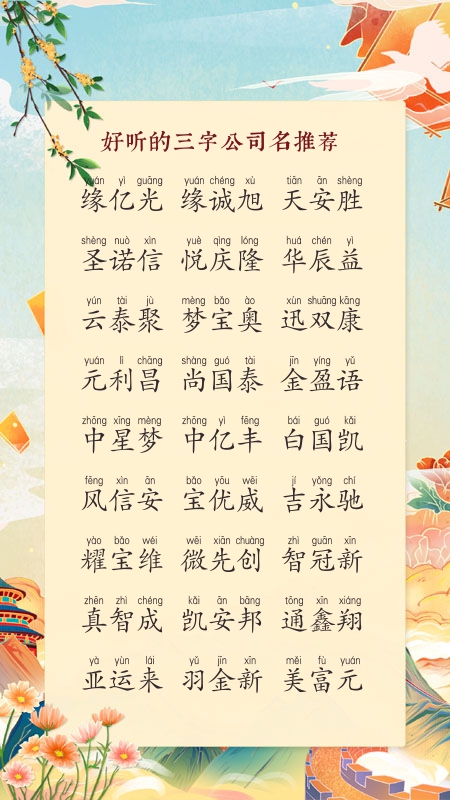 好听的三字公司名推荐
yuán yì guāng yuán chéng xù tiān ān shèng
缘亿光 缘诚旭 天安胜
shèng nuò xìn yuè qìng lóng huá chén yì
圣诺信 悦庆隆 华辰益
yún tài jù mèng bǎo ào xùn shuāng kāng
云泰聚 梦宝奥 迅双康
yuán lì chāng shàng guó tài jīn yíng yǔ
元利昌 尚国泰 金盈语
zhōng xīng mèng zhōng yì fēng bái guó kǎi
中星梦 中亿丰 白国凯
fēng xìn ān bǎo yōu wēi jí yǒng chí
风信安 宝优威 吉永驰
yào bǎo wéi wēi xiān chuàng zhì guān xīn
耀宝维 微先创 智冠新
zhēn zhì chéng kǎi ān bāng tōng xīn xiáng
真智成 凯安邦 通鑫翔
yà yùn lái yǔ jīn xīn měi fù yuán
亚运来 羽金新 美富元